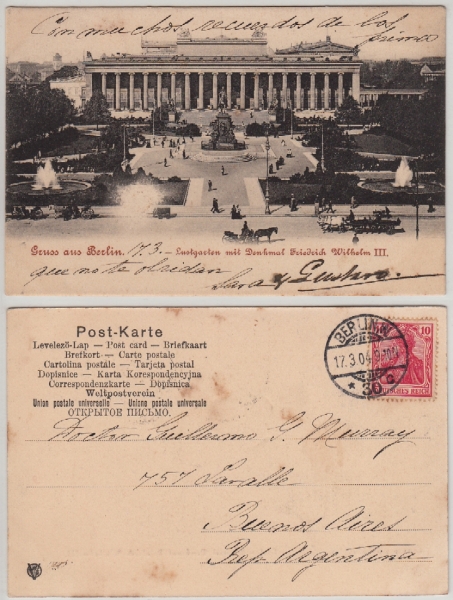 Con muchos recuerdos de los
primos
Gruss aus Berlin. 17.3. – Lustgarten mit Denkmal Friedrich Wilhelm III.
que no te olvidan
Sara y Gustavo.
Post-Karte
Levelező-Lap — Post card — Briefkaart
Brefkort – Carte postale
Cartolina postale – Tarjeta postal
Dopisnice – Karta Korespondencyjna
Correspondenzkarte – Dopisnica
Weltpostverein
Union postale universelle – Unione postale universale
ОТКРЫТОЕ ПИСЬМО.
BERLIN W
17.3.04
* 30
10
Doctor Guillermo G. Murray
757 Lavalle
Buenos Aires
Rep Argentina